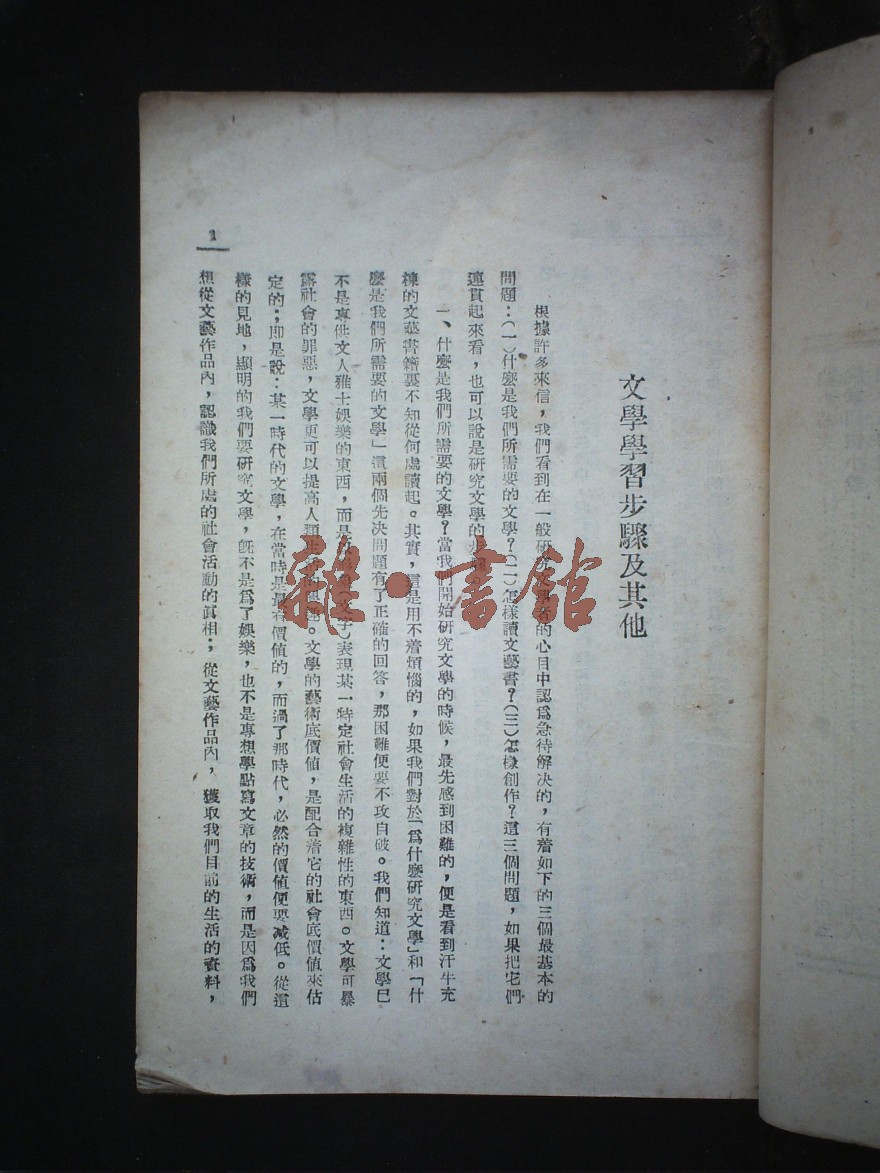 文學學習步驟及其他
根據許多來信，我們看到在一般研究文學者的心目中認爲急待解决的，有着如下的三個最基本的
問題：（一）什麼是我們所需要的文學？（二）怎樣讀文藝書？（三）怎樣創作？這三個問題，如果把它們
連貫起來看，也可以說是研究文學的步
一、什麼是我們所需要的文學？當我們開始研究文學的時候，最先感到困難的，便是看到汗牛充
棟的文藝書籍裏不知從何處讀起。其實，這是用不着煩惱的，如果我們對於「爲什麼研究文學」和「什
麼是我們所需要的文學」這兩個先决問題有了正確的回答，那困難便要不攻自破。我們知道：文學已
不是專供文人雅士娛樂的東西，而是 表現某一特定社會生活的複雜性的東西。文學可暴
露社會的罪惡，文學更可以提高人類生 。文學的藝術底價值，是配合着它的社會底價值來估
定的；即是說：某一時代的文學，在當時是最有價值的，而過了那時代，必然的價值便要减低。從這
樣的見地，顯明的我們要研究文學，旣不是爲了娛樂，也不是專想學點寫文章的技術，而是因爲我們
想從文藝作品內，認識我們所處的社會活動的眞相；從文藝作品內，獲取我們目前的生活的資料，
1
雜·書館